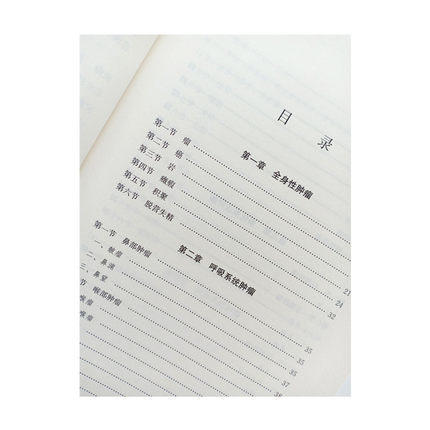 目录
第一章 全身性肿瘤
第一节 瘤
第二节 癌
第三节 岩
第四节 癥瘕
第五节 积聚
第六节 脱营失精
21
24
32
第二章 呼吸系统肿瘤
第一节 鼻部肿瘤 35
35
二、鼻渊 35
三、鼻窒 37
节 喉部肿瘤